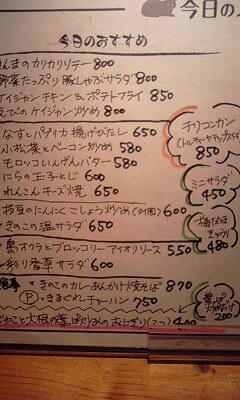 今日の
今日のおすすめ
んまのカリカリソテー 800
野菜たっぷり豚しゃぶサラダ 800
ケイジャンチキン&ポテトフライ 850
えびのケイジャン炒め 800
なすとパプリカ 揚げびたし 650
小松菜とベーコン炒め 580
モロッコいんげんバター 580
にらの玉子とじ 600
れんこんチーズ焼 650
枝豆のにんにくこしょう炒め 600
きのこの温サラダ 650
オクラとブロッコリーアイオリソース 550
彩り香草サラダ 600
きのこのカレーあんかけ焼そば 870
Ⓟ いきまぐれチャーハン 750
じゃことと大根の葉っぱ炒めのおにぎり(2つ) 400
チリコンカン
850
ミニサラダ
450
きゅうり
480
200